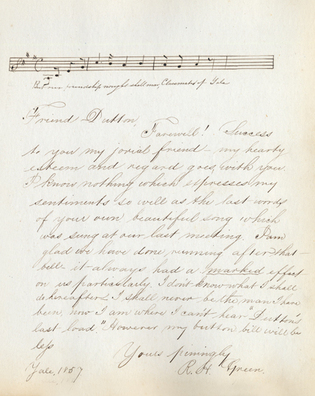 friendship weight shall own, Classmates of Yale.
Friend Dutton
Farewell! Success
to you my jovial friend – my hearty
esteem and regard goes with you.
I know nothing which expresses my
sentiments so well as the last words
of your own beautiful song which
was sung at our last meeting. I am
glad we have done running after that
bell it always had a marked effect
on us particularly. I don't know what I shall
do hereafter. I shall never be the man I have
been, now I am where I can't hear Dutton's
last load" However my button bill will be
less
Yours piningly
Yale, 1857
R. H. Green.